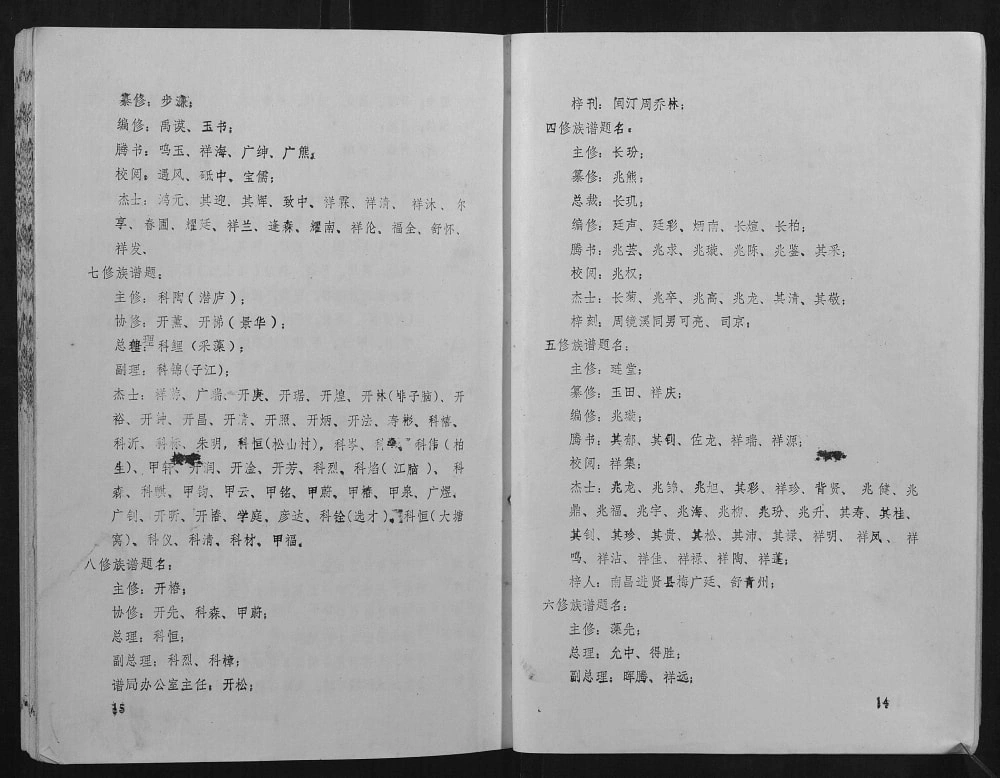 梓刊：闵汀周乔林；
四修族谱题名。
主修：长玢；
纂修：兆熊；
总裁：长玑；
编修：廷声、廷彩、炳南、长煊、长柏；
腾书：兆芸、兆求、兆璇、兆陈、兆鉴、其采；
校阅：兆权；
杰士：长菊、兆卒、兆高、兆龙、其清、其敬；
梓刻：周镜溪同男可亮、司京；
五修族谱题名：
主修：琏堂；
纂修：玉田、祥庆；
编修：兆璇；
腾书：其郁、其钊、佐龙、祥瑞、祥源；
校阅：祥集；
杰士：兆龙、兆锦、兆旭、其彩、祥珍、背贤、兆健、兆
鼎、兆福、兆宇、兆海、兆柳、兆玢、兆升、其寿、其桂、
其钊、其珍、其贵、其松、其沛、其禄、祥明、祥凤、祥
鸣、祥沾、祥佳、祥禄、祥陶、祥蓬；
梓人：南昌进贤县梅广廷、舒青州；
六修族谱题名：
主修：藻先；
总理：允中、得胜；
副总理：晖腾、祥远；
14
纂修：步濂；
编修：禹谟、玉书；
腾书：鸣玉、祥海、广绅、广熊。
校阅：遇风、砥中、宝儒；
杰士：鸿元、其迎、其晖、致中、祥霖、祥清、祥沐、尔
享、春圃、耀廷、祥兰、逢森、耀南、祥伦、福全、舒怀、
祥发。
七修族谱题：
主修：科陶（潜庐）；
协修：开薰、开悌（景华）；
总理：科鲤（采藻）；
副理：科锦(子江)；
杰士：祥、广瑞、开庚、开琚、开煌、开林(排子脑)、开
裕、开钟、开昌、开、开照、开炳、开法、寿彬、科禧、
科沂、科标、朱明，科恒(松山村)，科岑、科、科伟(柏
生)、甲、开润、开淦、开芳、科烈、科焰(江脑)、科
森、科麒、甲钧、甲云、甲铭、甲蔚、甲椿、甲泉、广煜、
广钊、开昕、开椿、学庭、彦达、科铨(选才)、科恒(大塘
离)、科仪、科清、科材、甲福。
八修族谱题名：
主修：开椿；
协修：开先、科森、甲蔚；
总理：科恒；
副总理：科烈、科樟；
谱局办公室主任：开松；
15